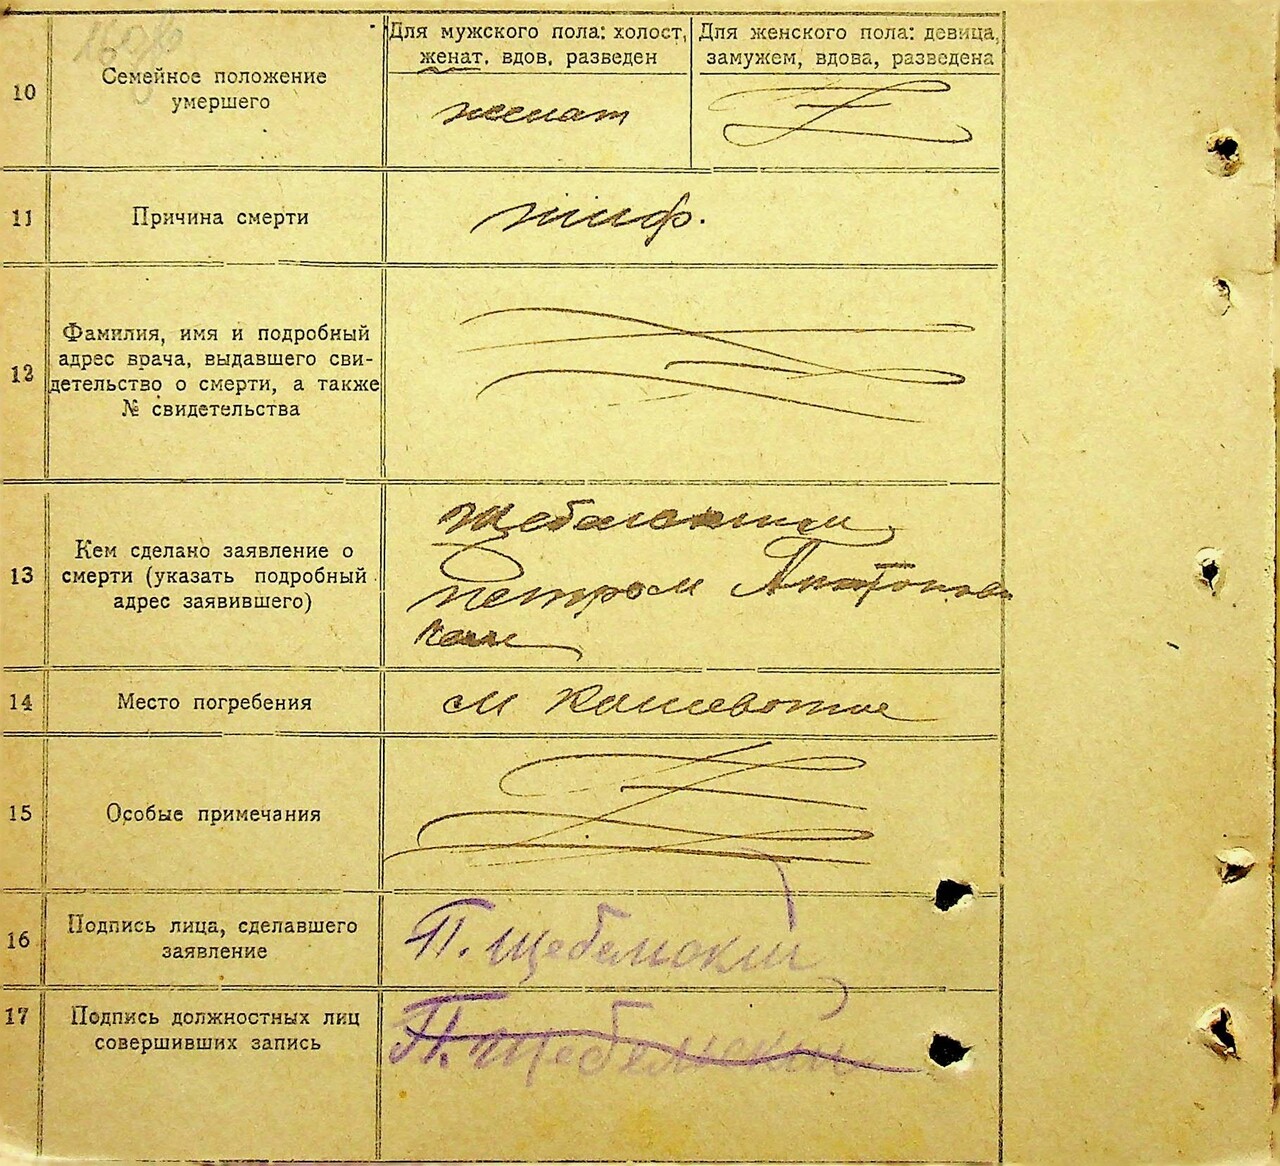 Для мужского пола: холост,
женат, вдов, разведен
Для женского пола: девица,
замужем, вдова, разведена
10
Семейное положение
умершего
женат
11
Причина смерти
тиф.
12
Фамилия, имя и подробный
адрес врача, выдавшего сви-
детельство о смерти, а также
№ свидетельства
13
Кем сделано заявление о
смерти (указать подробный
адрес заявившего)
Петром Антонови
чем
14
Место погребения
м Кошевотое
15
Особые примечания
16
Подпись лица, сделавшего
заявление
П. Щебельский
17
Подпись должностных лиц
совершивших запись
П. Щебельский